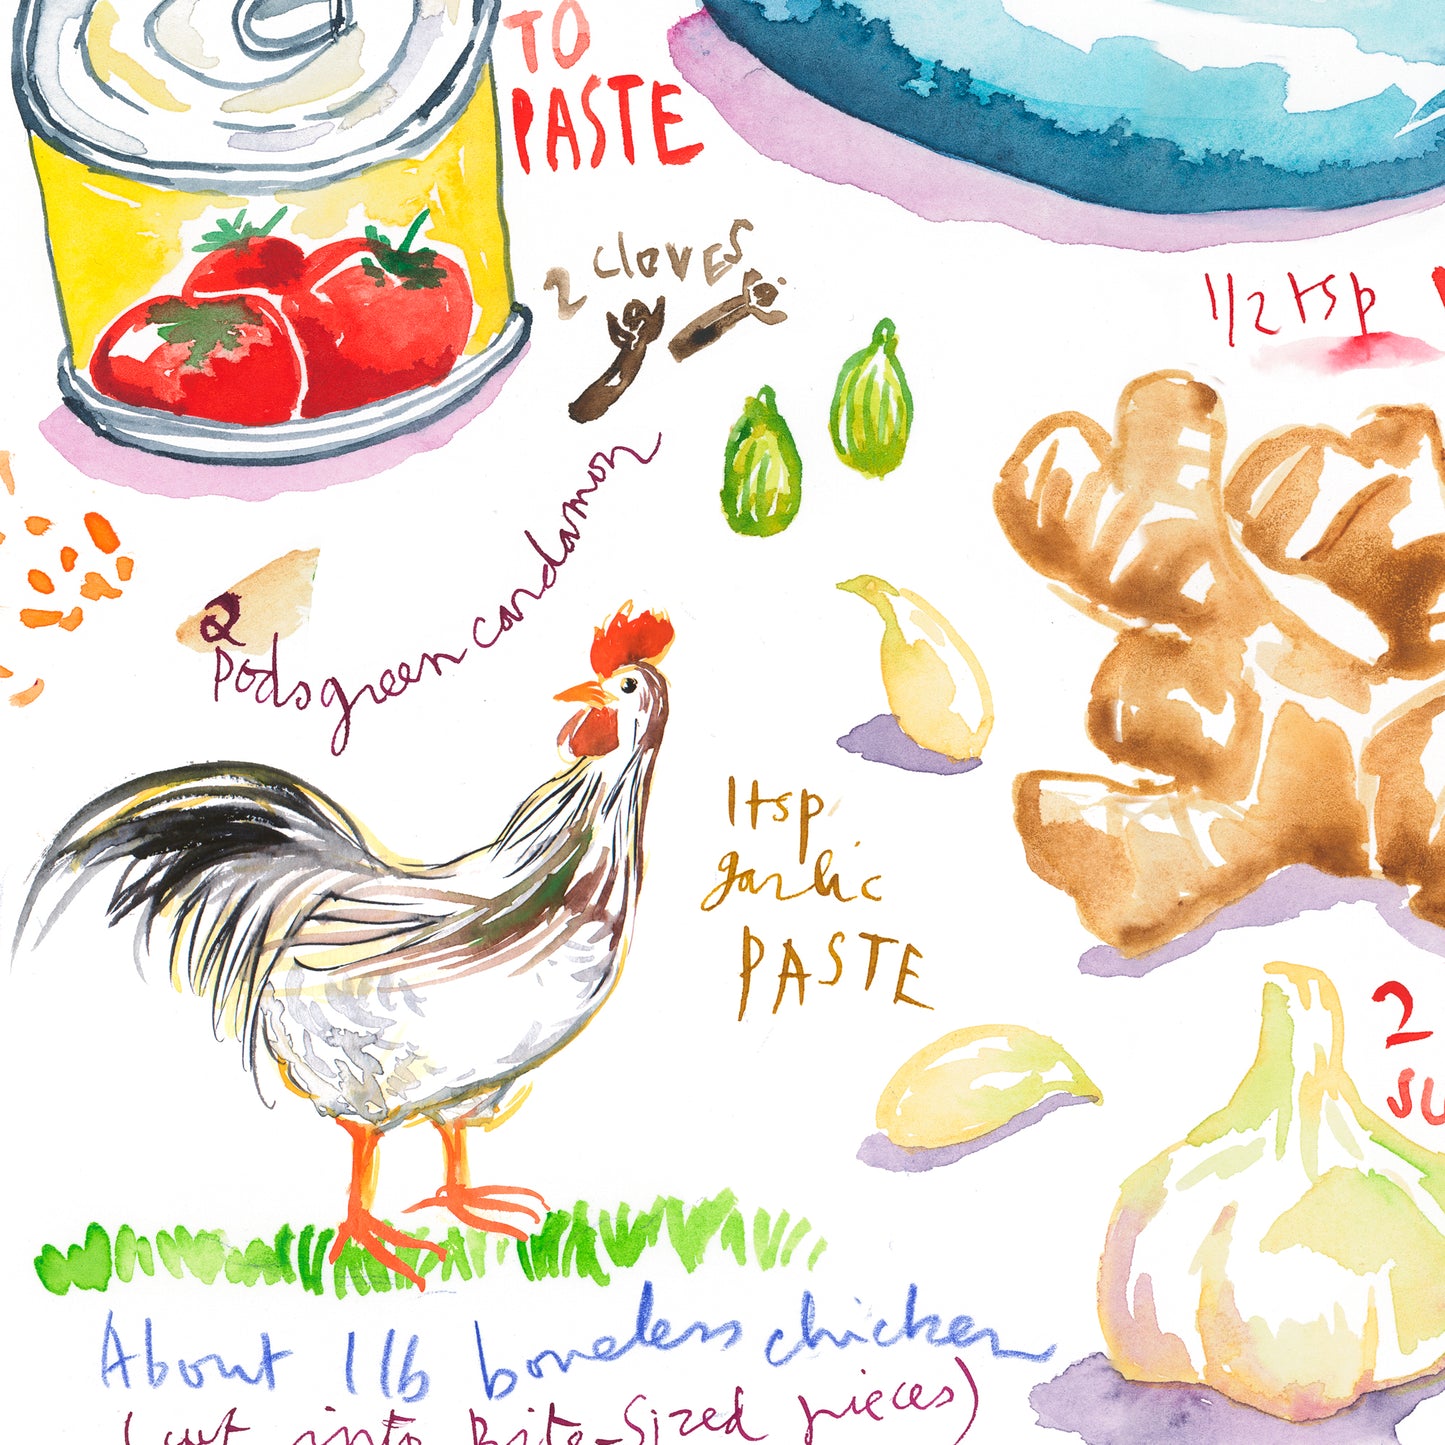 TO
PASTE
2 cloves
1/2 tsp
2
Pods green cardamon
1 tsp
garlic
PASTE
2
su
About 1 lb boneless chicken
(cut into Bite-Sized pieces)